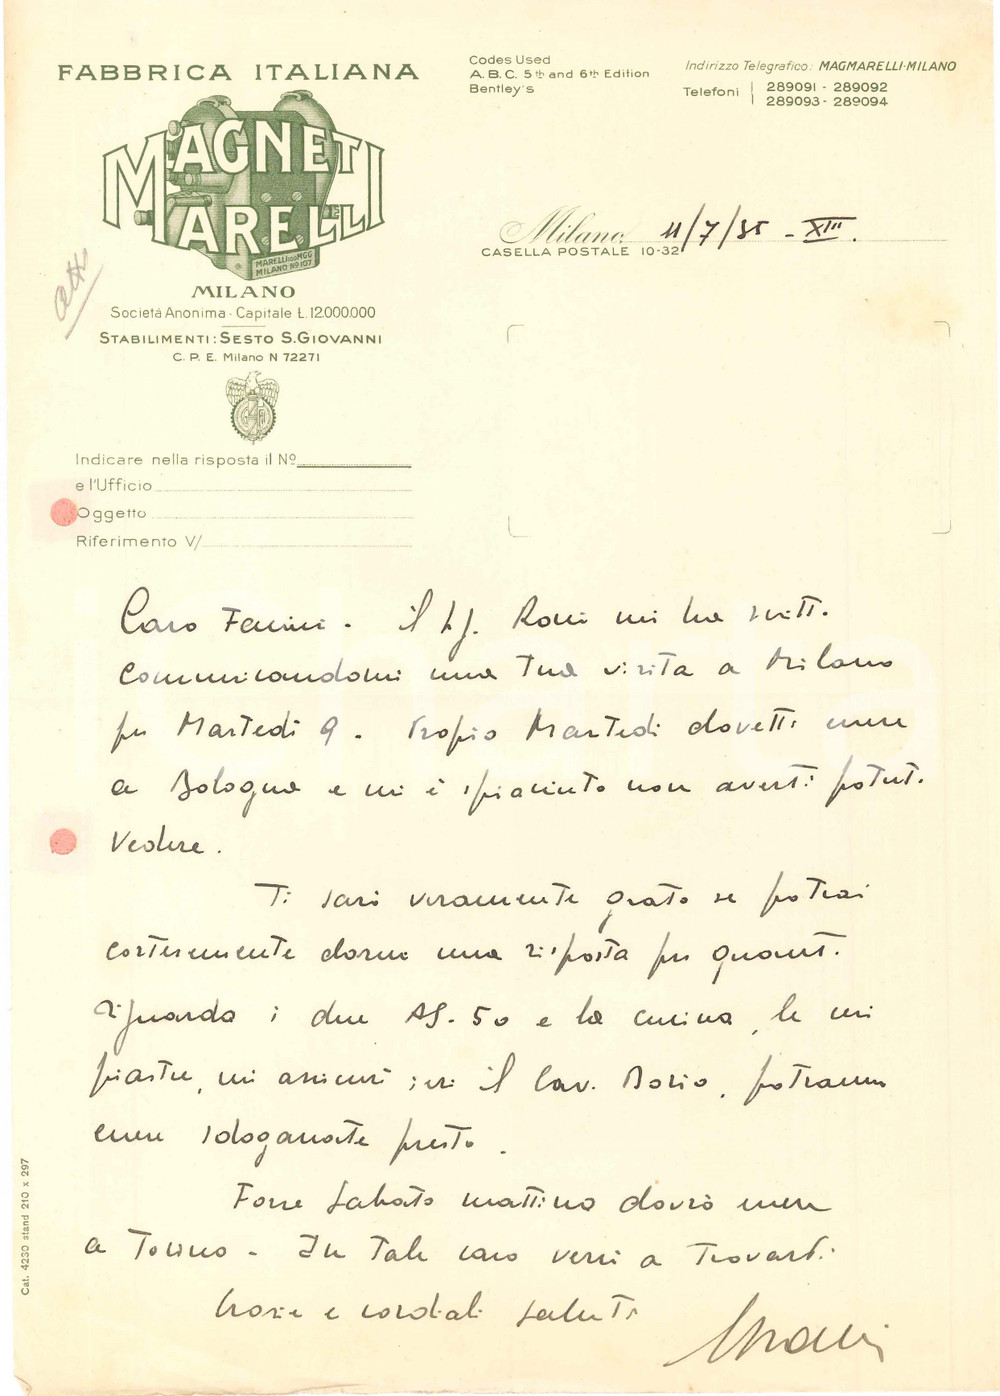 FABBRICA ITALIANA
MAGNETI
MARELLI
MARELLI 100 MGG
MILANO No 107
MILANO
Società Anonima - Capitale L. 12.000.000
STABILIMENTI: SESTO S. GIOVANNI
C. P. E. Milano N 72271
Codes Used
A. B. C. 5th and 6th Edition
Bentley's
Indirizzo Telegrafico: MAGMARELLI-MILANO
Telefoni 289091 - 289092
289093 - 289094
Milano, 11/7/35 - XIII.
CASELLA POSTALE 10-32
Indicare nella risposta il Nº
e l'Ufficio
Oggetto
Riferimento V/
Caro - il Sig. mi ha scritto
comunicandomi una tua visita a Milano
per Martedi 9. Proprio Martedi dovetti essere
a Bologna e mi è spiaciuto non averti potuto
vedere.
Ti sarò veramente grato se potrai
cortesemente darmi una risposta per quanto
riguarda i due AS-50 e la cucina, le cui
piastre, mi assicurò ieri il Cav. Bosio, potranno
essere sdoganate presto.
Forse Sabato mattina dovrò essere
a Torino - In tale caso verrò a trovarti.
Grazie e cordiali saluti
Cat. 4230 stand 210 x 297